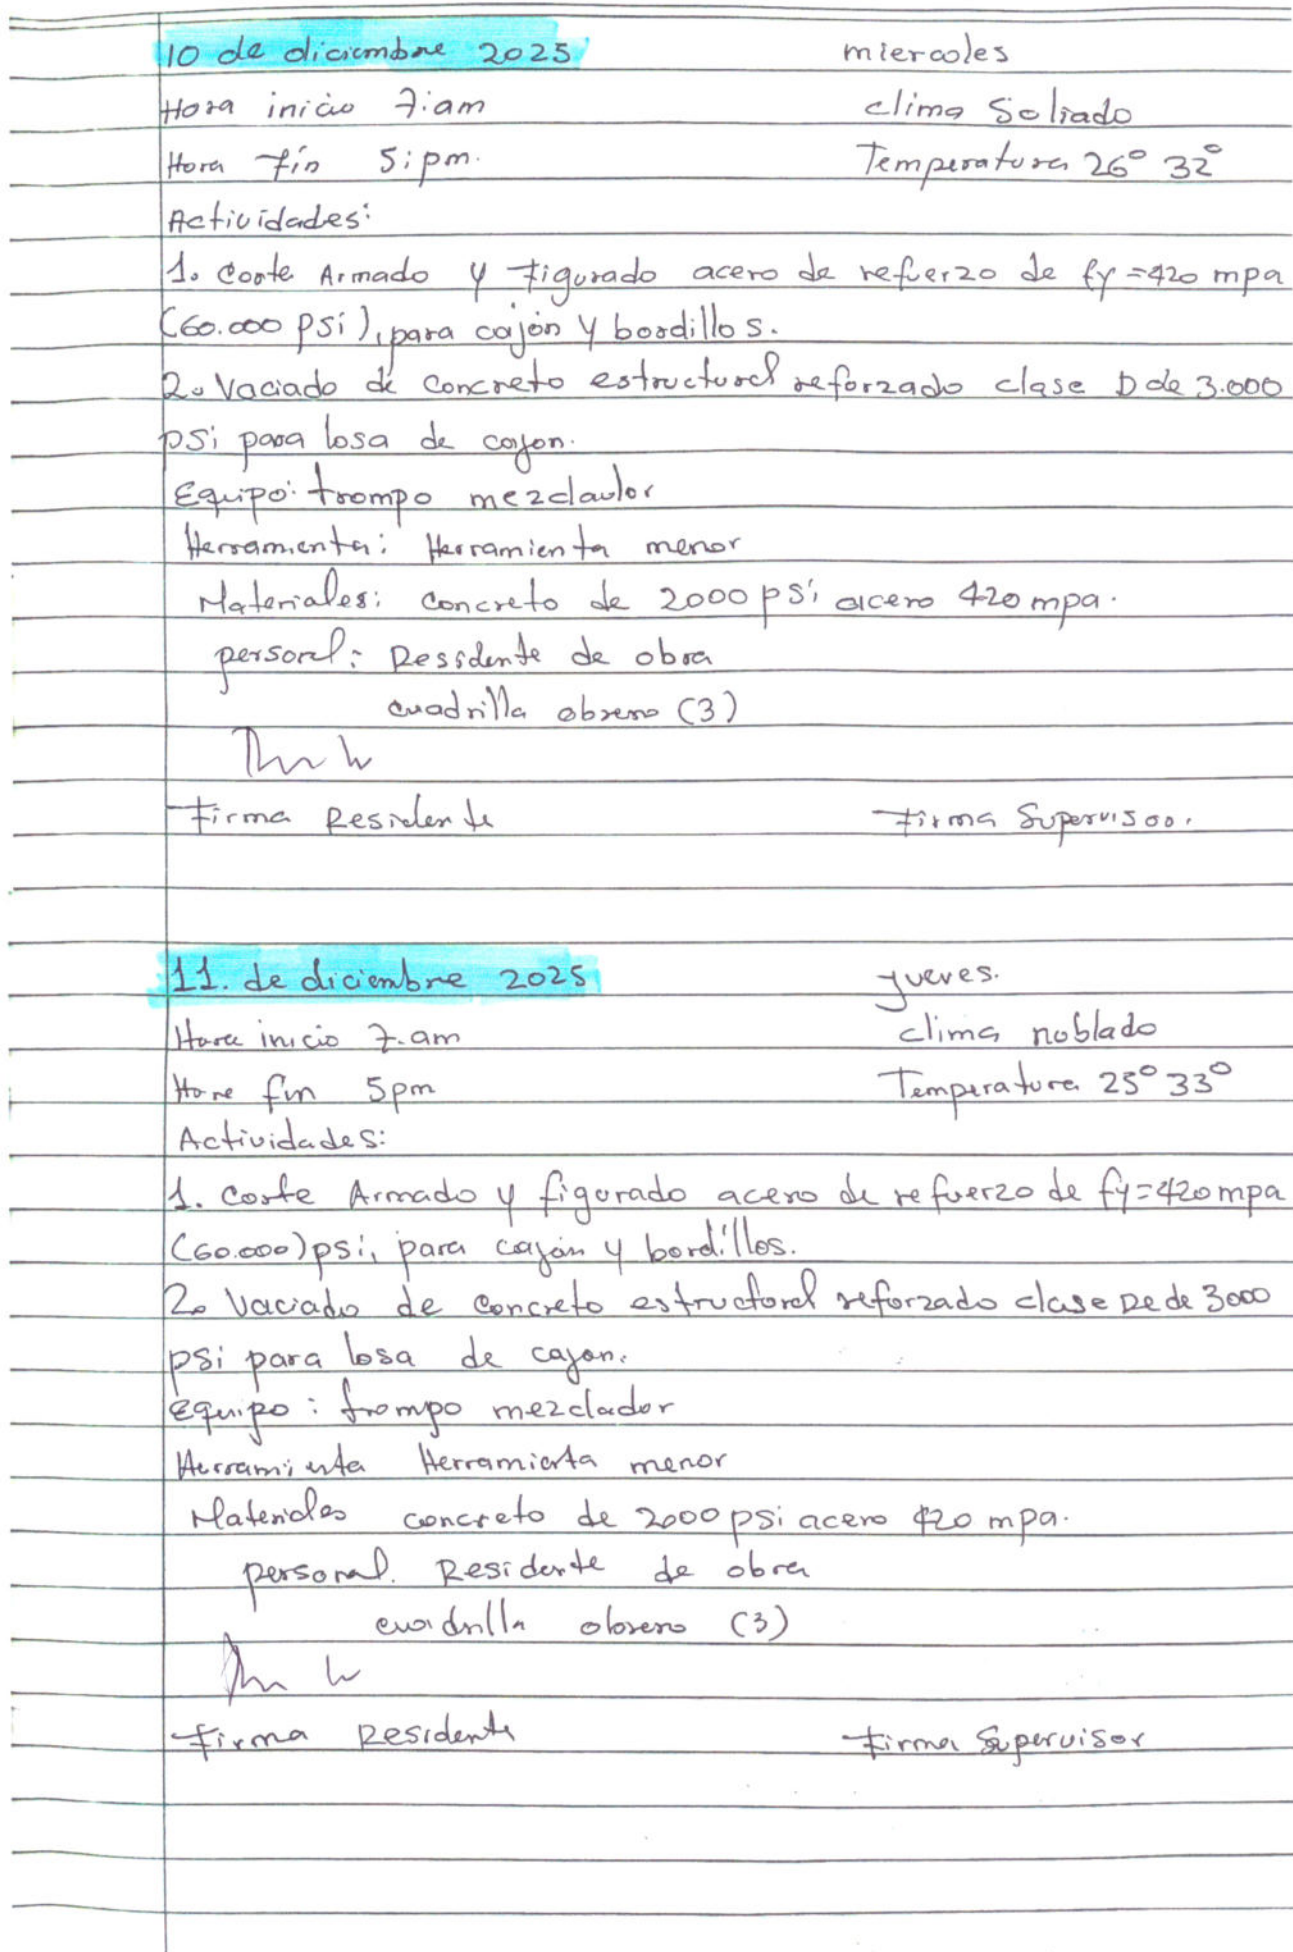 10 de diciembre 2025 miercoles
Hora inicio 7:am clima Soliado
Hora fin 5:pm. Temperatura 26° 32°
Actividades:
1. Corte Armado y figurado acero de refuerzo de fy=420 mpa
(60.000 psi), para cajón y bordillos.
2. Vaciado de concreto estructural reforzado clase D de 3.000
psi para losa de cajon.
Equipo: trompo mezclador
Herramienta: Herramienta menor
Materiales: concreto de 2000 psi acero 420 mpa.
personal: Residente de obra
cuadrilla obrero (3)
Firma Residente Firma Supervisor.
11. de diciembre 2025 jueves.
Hora inicio 7.am clima noblado
Hora fin 5pm Temperatura 25° 33°
Actividades:
1. Corte Armado y figurado acero de refuerzo de fy=420mpa
(60.000) psi, para cajón y bordillos.
2. Vaciado de concreto estructural reforzado clase De de 3000
psi para losa de cajon.
Equipo: trompo mezclador
Herramienta Herramienta menor
Materiales concreto de 2000 psi acero 420 mpa.
personal. Residente de obra
cuadrilla obrero (3)
Firma Residente Firma Supervisor